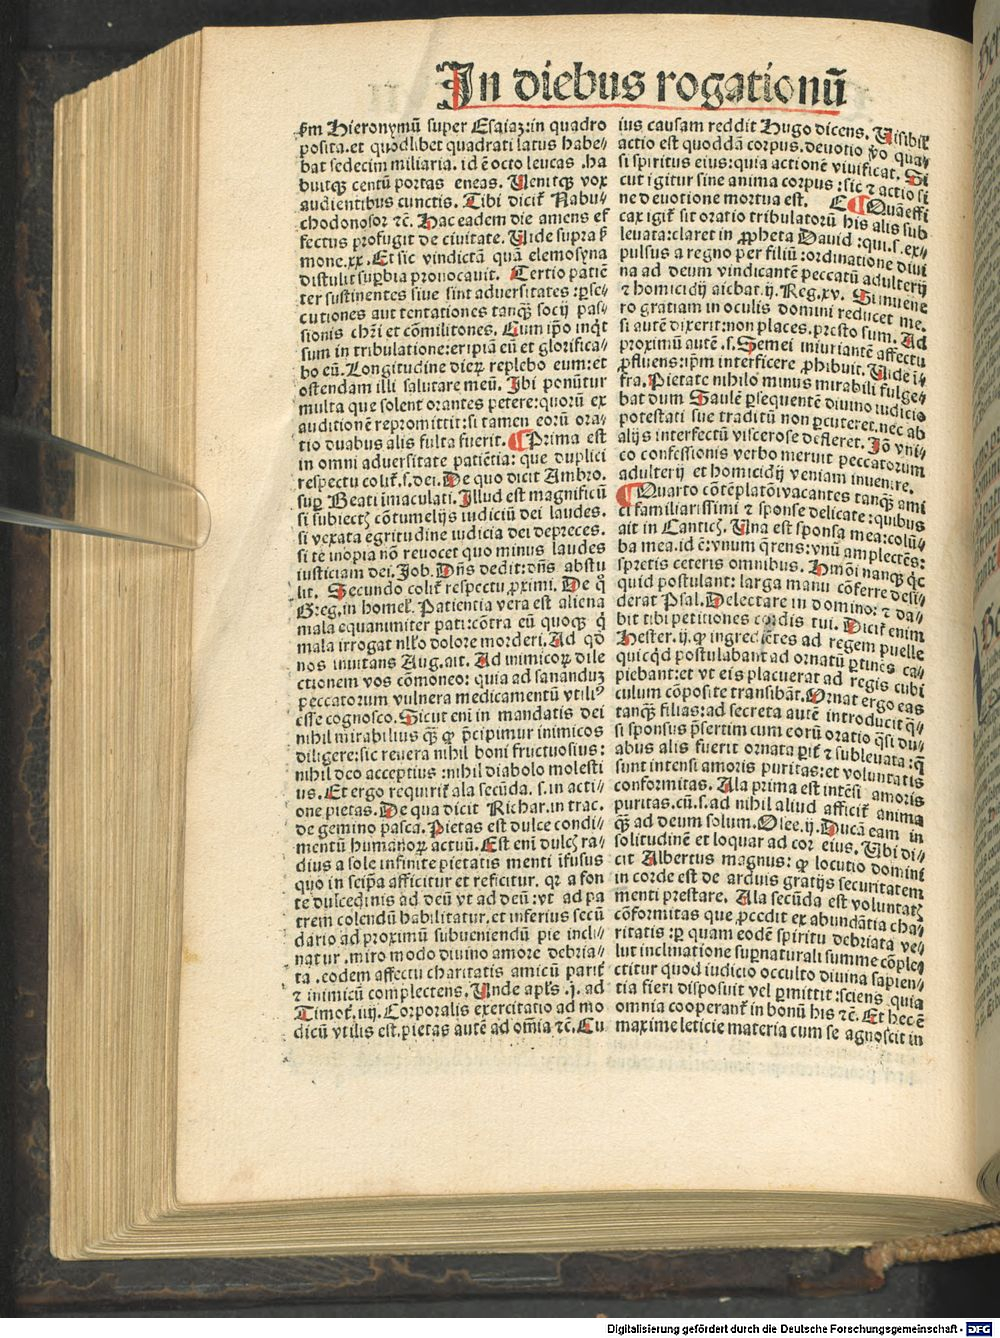 In diebus rogationū
ẜm Hieronymū super Esaiaȝ:in quadro
posita.et quodlibet quadrati latus habe⸗
bat sedecim miliaria. id ē octo leucas .ha
buitqȝ centū portas eneas. Uenitqȝ vox
audientibus cunctis. Tibi dicit̉ Nabu⸗
chodonosor ⁊c̄. Hac eadem die amens ef
fectus profugit de ciuitate. Uide supra ẜ
mone.xx. Et sic vindictā quā elemosyna
distulit suꝑbia prouocauit. Tertio patiē
ter sustinentes siue sint aduersitates :ꝑse⸗
cutiones aut tentationes tanqȝ̄ socij pas⸗
sionis chr̄i et cōmilitones. Cum ip̄o inq̇t
sum in tribulatione:eripiā eū et glorifica⸗
bo eū. Longitudine dieꝝ replebo eum:et
ostendam illi salutare meū. Ibi ponūtur
multa que solent orantes petere:quorū ex
auditionē repromittit:si tamen eorū ora⸗
tio duabus alis fulta fuerit. ¶Prima est
in omni aduersitate patiētia: que duplici
respectu colit̉.s.dei. De quo dicit Ambro.
suꝑ Beati īmaculati. Illud est magnificū
si subiectꝰ cōtumelijs iudiciū dei laudes.
si vexata egritudine iudicia dei depreces.
si te inopia nō reuocet quo minus laudes
iusticiam dei. Job. Dn̄s dedit:dn̄s abstu
lit. Secundo colit̉ respectu ꝓximi. De q̊
Greg.in homel̉. Patientia vera est aliena
mala equanimiter pati:cōtra eū quoqȝ q̇
mala irrogat nll̉o dolore morderi. Ad qd̄
nos inuitans Aug.ait. Ad inimicoꝝ dile
ctionem vos cōmoneo: quia ad sananduȝ
peccatorum vulnera medicamentū vtiliꝰ
esse cognosco. Sicut eni in mandatis dei
nihil mirabilius qȝ̄ ꝙ p̄cipimur inimicos
diligere:sic reuera nihil boni fructuosius:
nihil deo acceptius :nihil diabolo molesti
us. Et ergo requirit̉ ala secūda. s.in acti⸗
one pietas. De qua dicit Richar.in trac.
de gemino pasca. Pietas est dulce condi⸗
mentū humanoꝝ actuū. Est eni dulcꝭ ra⸗
dius a sole infinite pietatis menti īfusus
quo in seip̄a afficitur et reficitur. qr a fon
te dulcedinis ad deū vt ad deū :vt ad pa
trem colendū habilitatur.et inferius secū
dario ad proximū subueniendū pie incli⸗
natur .miro modo diuino amore debria⸗
ta .eodem affectu charitatis amicū parit̉
⁊ inimicū complectens. Unde apl̉s .j. ad
Timot̉.iiij. Corporalis exercitatio ad mo
dicū vtilis est.pietas autē ad om̄ia ⁊c̄. Cu
ius causam reddit Hugo dicens. Uisibil̉
actio est quoddā corpus.deuotio ꝟo qua⸗
si spiritus eius:quia actionē viuificat. Si
cut igitur sine anima corpus :sic ⁊ actio si
ne deuotione mortua est. ¶Quā effi
cax igit̉ sit oratio tribulatorū his alis sub
leuata:claret in ꝓpheta Dauid :qui.s.ex⸗
pulsus a regno per filiū :ordinatione diui
na ad deum vindicantē peccatū adulterij
⁊ homicidij aiebat.ij. Reg.xv. Si inuene
ro gratiam in oculis domini reducet me.
si autē dixerit:non places.presto sum. Ad
proximū autē .s. Semei iniuriantē affectu
ꝓfluens:ip̄m interficere ꝓhibuit. Uide ī⸗
fra. Pietate nihilo minus mirabili fulge⸗
bat dum Saulē ꝑsequentē diuino iudicio
potestati sue traditū non ꝑcuteret.nec ab
alijs interfectū viscerose defleret. Iō vni⸗
co confessionis verbo meruit peccatorum
adulterij et homicidij veniam inuenire.
¶Quarto cōtēplatōi vacantes tanqȝ̄ ami
ci familiarissimi ⁊ sponse delicate :quibus
ait in Canticꝭ. Una est sponsa mea:colū⸗
ba mea.id ē:vnum q̄rens:vnū amplectēs:
spretis ceteris omnibus. Hmōi nanqȝ q̇c
quid postulant: larga manu cōferre desi⸗
derat Psal. Delectare in domino: ⁊ da⸗
bit tibi petitiones cordis tui. Dicit̉ enim
Hester. ij. ꝙ ingrediētes ad regem puelle
quicq̇d postulabant ad ornatū ꝑtinēs ca⸗
piebant:et vt eis placuerat ad regis cubi
culum cōposite transibāt. Ornat ergo eas
tanqȝ̄ filias:ad secreta autē introducit q̄⸗
si sponsus p̄sertim cum eorū oratio q̄si du⸗
abus alis fuerit ornata ꝑit̉ ⁊ subleuata :q̄
sunt intensi amoris puritas:et voluntatis
conformitas. Ala prima est intēsi amoris
puritas.cū.s.ad nihil aliud afficit̉ anima
qȝ̄ ad deum solum. Osee.ij. Ducā eam in
solitudinē et loquar ad cor eius. Ubi di⸗
cit Albertus magnus: ꝙ locutio domini
in corde est de arduis gratijs securitatem
menti prestare. Ala secūda est voluntatꝭ
cōformitas que ꝓcedit ex abundātia cha⸗
ritatis :ꝑ quam eodē spiritu debriata ve⸗
lut inclinatione supnaturali summe cōple⸗
ctitur quod iudicio occulto diuina sapien⸗
tia fieri disposuit vel ꝑmittit :sciens quia
omnia cooperant̉ in bonū his ⁊c̄. Et hec ē
maxime leticie materia cum se agnoscit in
Digitalisierung gefördert durch die Deutsche Forschungsgemeinschaft - DFG